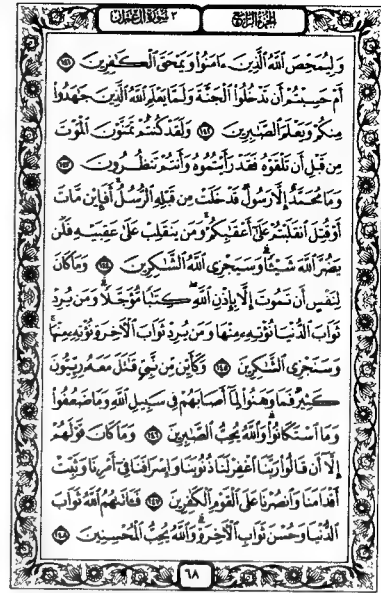 الجزء الرابع ٣ سورة آل عمران
وَلِيُمَحِّصَ ٱللَّهُ ٱلَّذِينَ ءَامَنُوا۟ وَيَمْحَقَ ٱلْكَٰفِرِينَ ١٤١
أَمْ حَسِبْتُمْ أَن تَدْخُلُوا۟ ٱلْجَنَّةَ وَلَمَّا يَعْلَمِ ٱللَّهُ ٱلَّذِينَ جَٰهَدُوا۟
مِنكُمْ وَيَعْلَمَ ٱلصَّٰبِرِينَ ١٤٢ وَلَقَدْ كُنتُمْ تَمَنَّوْنَ ٱلْمَوْتَ
مِن قَبْلِ أَن تَلْقَوْهُ فَقَدْ رَأَيْتُمُوهُ وَأَنتُمْ تَنظُرُونَ ١٤٣
وَمَا مُحَمَّدٌ إِلَّا رَسُولٌ قَدْ خَلَتْ مِن قَبْلِهِ ٱلرُّسُلُ أَفَإِي۟ن مَّاتَ
أَوْ قُتِلَ ٱنقَلَبْتُمْ عَلَىٰٓ أَعْقَٰبِكُمْ وَمَن يَنقَلِبْ عَلَىٰ عَقِبَيْهِ فَلَن
يَضُرَّ ٱللَّهَ شَيْـًٔا وَسَيَجْزِى ٱللَّهُ ٱلشَّٰكِرِينَ ١٤٤ وَمَا كَانَ
لِنَفْسٍ أَن تَمُوتَ إِلَّا بِإِذْنِ ٱللَّهِ كِتَٰبًا مُّؤَجَّلًا وَمَن يُرِدْ
ثَوَابَ ٱلدُّنْيَا نُؤْتِهِۦ مِنْهَا وَمَن يُرِدْ ثَوَابَ ٱلْءَاخِرَةِ نُؤْتِهِۦ مِنْهَا
وَسَنَجْزِى ٱلشَّٰكِرِينَ ١٤٥ وَكَأَيِّن مِّن نَّبِىٍّ قَٰتَلَ مَعَهُۥ رِبِّيُّونَ
كَثِيرٌ فَمَا وَهَنُوا۟ لِمَآ أَصَابَهُمْ فِى سَبِيلِ ٱللَّهِ وَمَا ضَعُفُوا۟
وَمَا ٱسْتَكَانُوا۟ وَٱللَّهُ يُحِبُّ ٱلصَّٰبِرِينَ ١٤٦ وَمَا كَانَ قَوْلَهُمْ
إِلَّآ أَن قَالُوا۟ رَبَّنَا ٱغْفِرْ لَنَا ذُنُوبَنَا وَإِسْرَافَنَا فِىٓ أَمْرِنَا وَثَبِّتْ
أَقْدَامَنَا وَٱنصُرْنَا عَلَى ٱلْقَوْمِ ٱلْكَٰفِرِينَ ١٤٧ فَـَٔاتَىٰهُمُ ٱللَّهُ ثَوَابَ
ٱلدُّنْيَا وَحُسْنَ ثَوَابِ ٱلْءَاخِرَةِ وَٱللَّهُ يُحِبُّ ٱلْمُحْسِنِينَ ١٤٨
٦٨